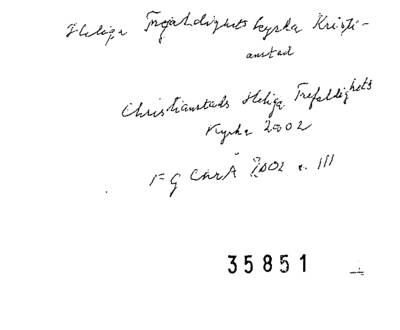 Heliga Trefaldighets kyrka Kristi-
anstad
Christianstads Heliga Trefaldighets
Kyrka 2002
35851